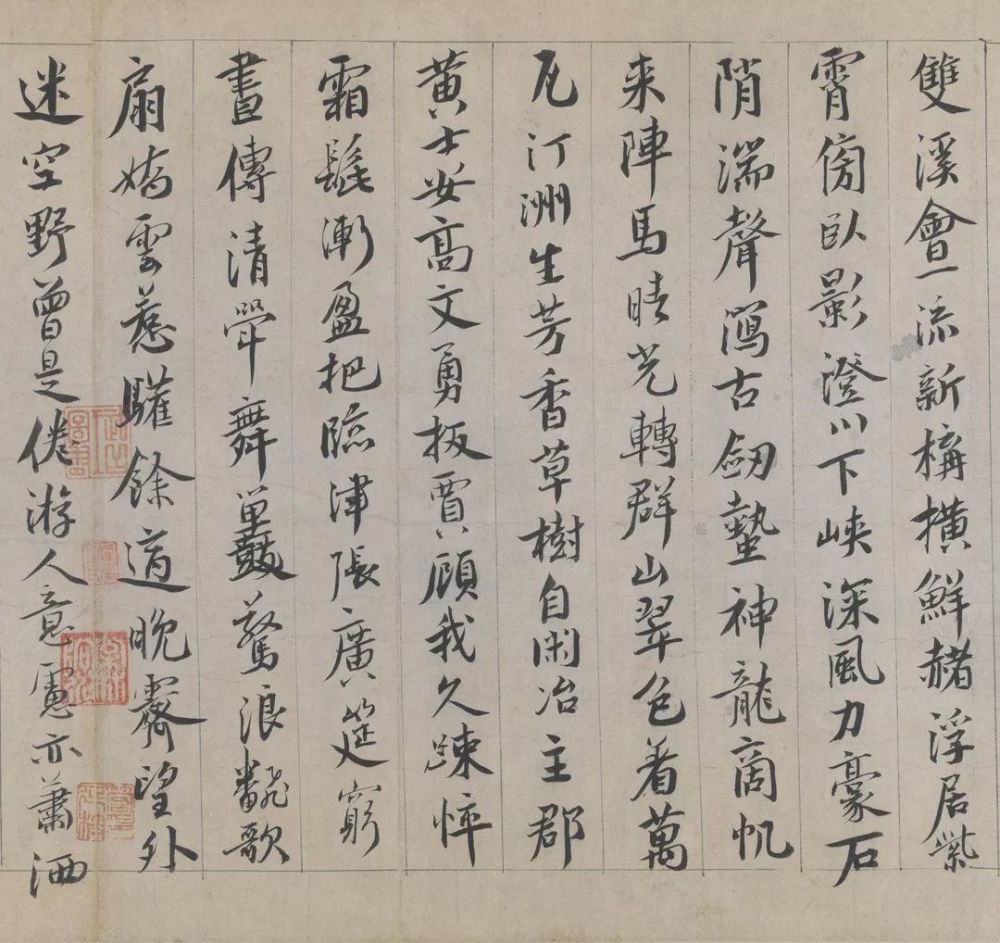 雙溪會一流新構橫鮮赭浮居紫
霄傍臥影澄川下峽深風力豪石
陗湍聲瀉古劒蟄神龍商帆
来陣馬晴光轉群山翠色着萬
瓦汀洲生芳香草樹自閑冶主郡
黄士安高文勇扳賈顧我久踈悴
霜髭漸盈把臨津張廣筵窮
晝傳清斝舞鼉驚浪翻歌
扇嬌雲惹驩餘適晚霽望外
迷空野曾是倦游人意慮亦蕭洒